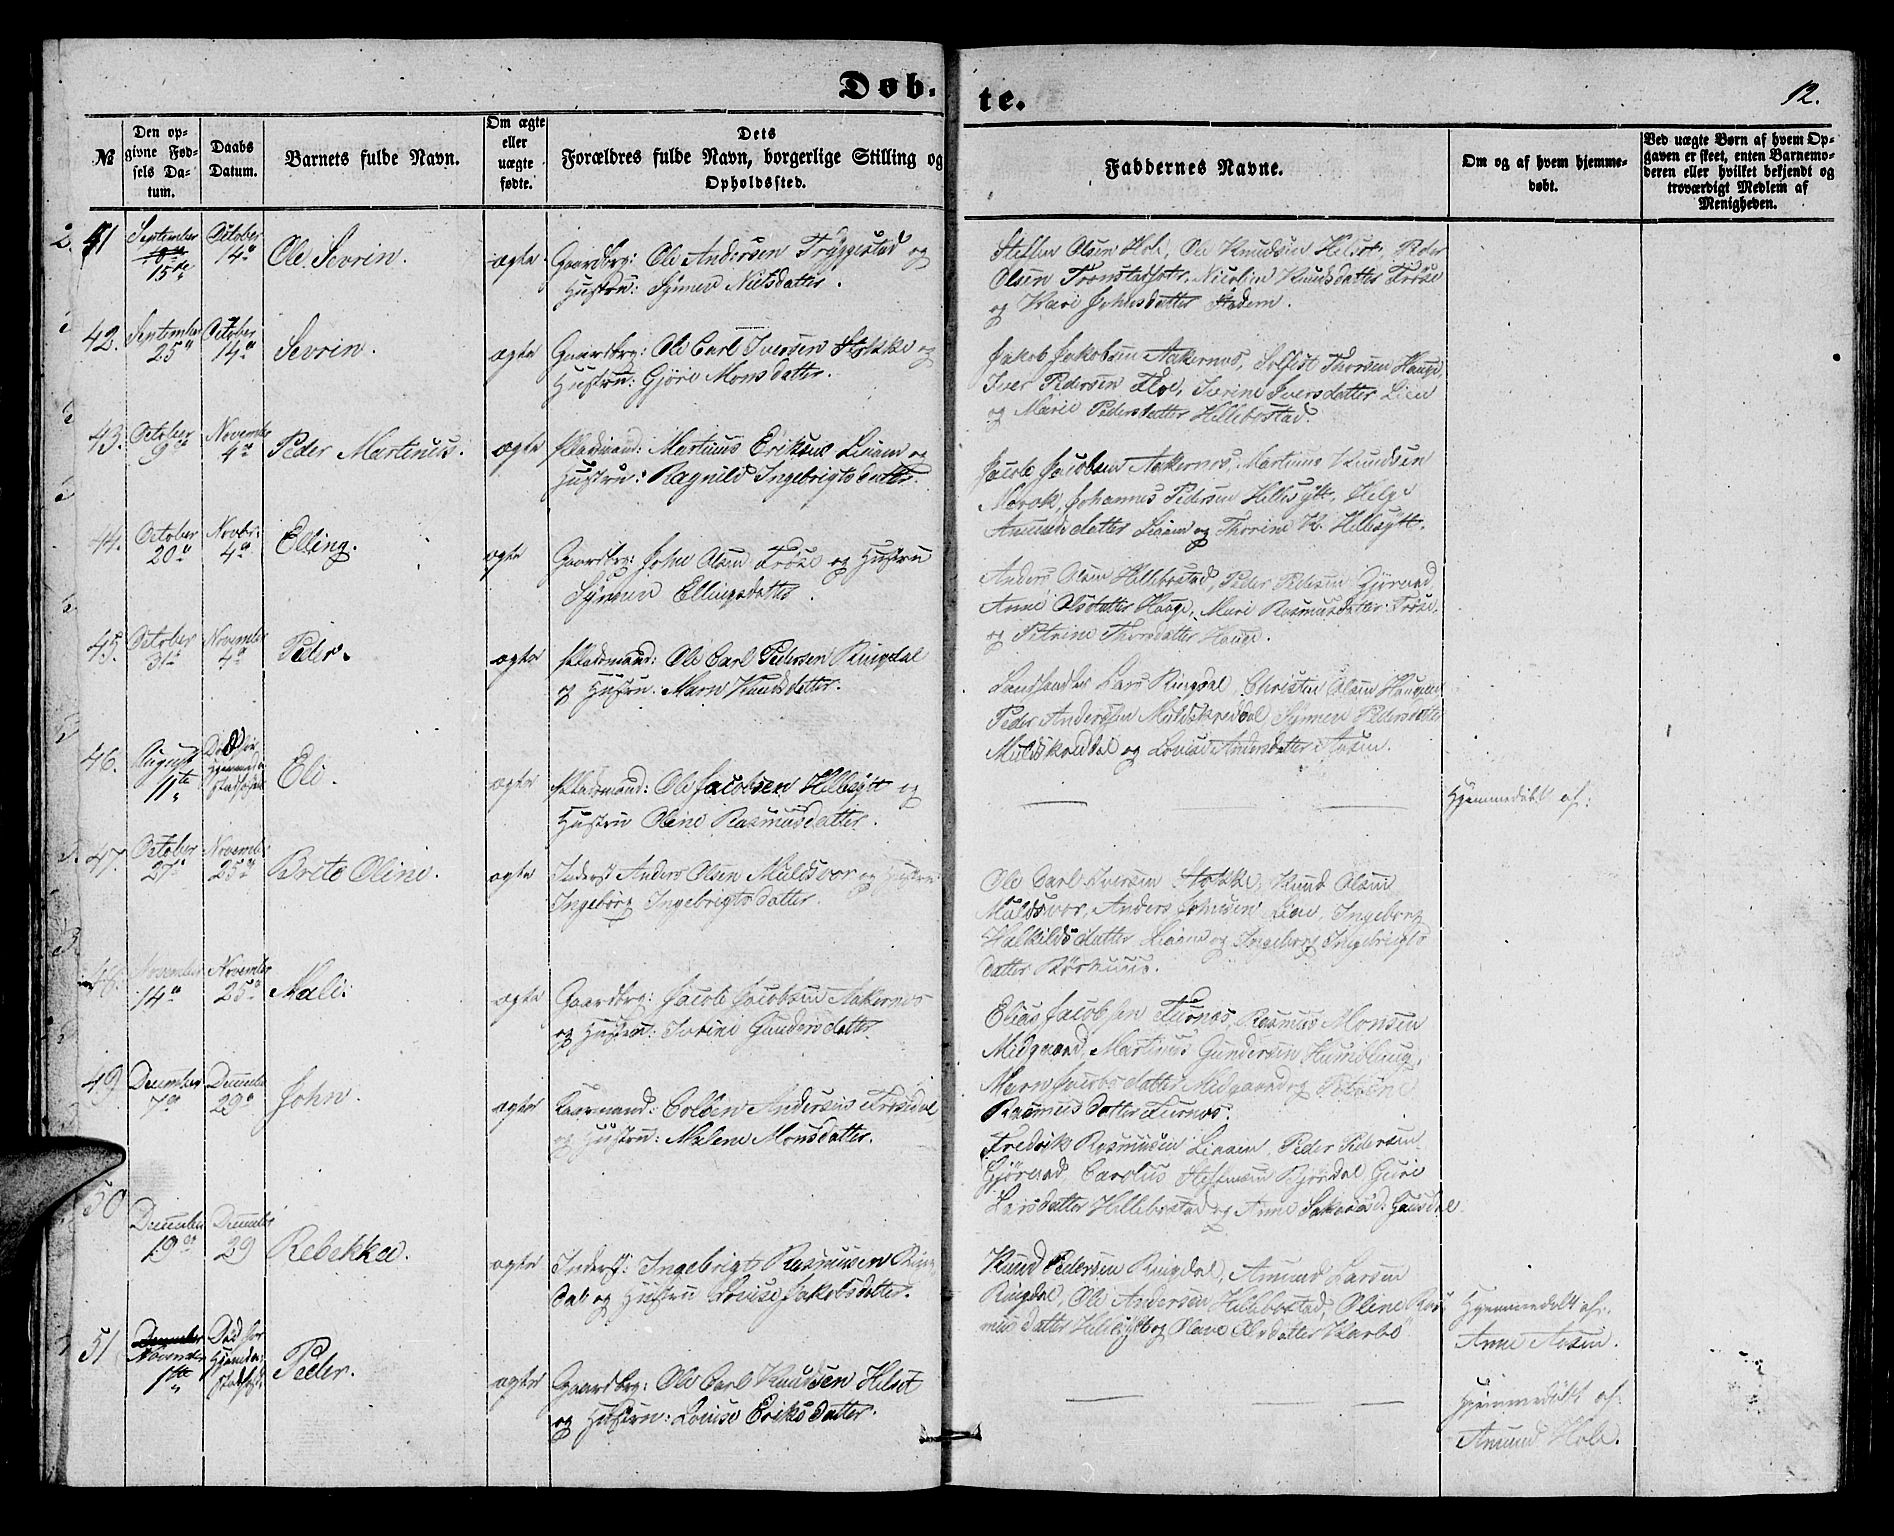 Døb-
te.
12.
№
Den op-
givne Fød-
sels Da-
tum.
Daabs
Datum.
Barnets fulde Navn.
Om ægte
eller
uægte
fødte.
Dets
Forældres fulde Navn, borgerlige Stilling og
Opholdssted.
Faddernes Navne.
Om og af hvem hjemme-
døbt.
Ved uægte Børn af hvem Op-
gaven er skeet, enten Barnemo-
deren eller hvilket bekjendt og
troværdigt Medlem af
Menigheden.
41
September
15de
October
14de
Ole Sevrin.
ægte
Gaardbrg: Ole Andersen Tryggestad og
Hustru: Nilsdatter.
Steffen Olsen Hole, Ole Knudsen Hilset, Peder
Olsen Nicoline Knudsdatter Frøse
og Kari
42.
September
25
October
14
Sevrin.
ægte
Gaardbrg: Ole Carl Iversen Stokke og
Hustru: Gjøre Monsdatter.
Jakob Jakobsen Aakernes, Thorsen Hauge
Iver Pedersen Floe, Sevrine Iversdatter Lien
og Marie Pedersdatter Hillebostad.
43.
October
9
November
4
Peder Martinus.
ægte
Pladsmand: Martinus Eriksen Liaaen og
Hustru: Ragnild Ingebrigtsdatter.
Jacob Jacobsen Aakernes, Martinus Knudsen
Merok, Johannes Pedersen Hillesytt, Helge
Amundsdatter Liaaen og Thorine K. Hillesytt.
44.
October
20
Novbr:
4
Elling.
ægte
Gaardbrg: John Olsen Frøse og Hustru
Ellingsdatter.
Anders Olsen Hillebostad, Peder Pedersen
Anne Olsdatter Hauge, Mari Rasmusdatter Frøse,
og Petrine Thorsdatter Hauge.
45.
October
31
November
4
Peder.
ægte
Pladsmand: Ole Carl Pedersen Ringdal
og Hustru: Maren Knudsdatter.
Lars Ringdal, Christen Olsen
Peder Andersen Muldskreddal, Pedersdatter
Muldskreddal og Lovise Andersdatter Aasen.
46.
August
11te
Død før
Eli.
ægte
Pladsmand: Ole Jacobsen Hillesytt og
Hustru Oline Rasmusdatter.
Hjemmedøbt af:
47.
October
27
November
25
Brite Oline.
ægte
Inderst Anders Olsen Muldsvor og Hustru
Ingeborg Ingebrigtsdatter.
Ole Carl Iversen Stokke, Knud Olsen
Muldsvor, Anders Johnsen Lien, Ingeborg
Halkildsdatter Liaaen og Ingeborg Ingebrigts
datter
48.
November
14
November
25
Mali.
ægte
Gaardbrg: Jacob Jacobsen Aakernes
og Hustru: Sevrine Gundersdatter.
Elias Jacobsen Furnes, Rasmus Monsen
Midgaard, Martinus Gundersen Humlung,
Maren Jacobsdatter Midgaard og
Rasmusdatter Furnes.
49
December
7
December
29
John.
ægte
Kaarmand: Colben Andersen Frøisdal
og Hustru: Malene Monsdatter.
Fredrik Rasmusen Liaaen, Peder Pedersen
Carolus Bjørdal, Guri
Larsdatter Hillebostad og Anne
50
December
19
December
29
Rebekka.
ægte
Inderst: Ingebrigt Rasmussen Ring-
dal og Hustru Lovise Jakobsdatter.
Knud Pedersen Ringdal, Amund Larsen
Ringdal, Ole Andersen Hillebostad, Oline Ras-
musdatter Hillesytt og Olave Olsdatter Karbø
Hjemmedøbt af:
Anne Aasen.
51
December
November
1te
Død før
Peder.
ægte
Gaardbrg: Ole Carl Knudsen Hilset
og Hustru: Lovise Eriksdatter.
Hjemmedøbt af:
Amund Hole.